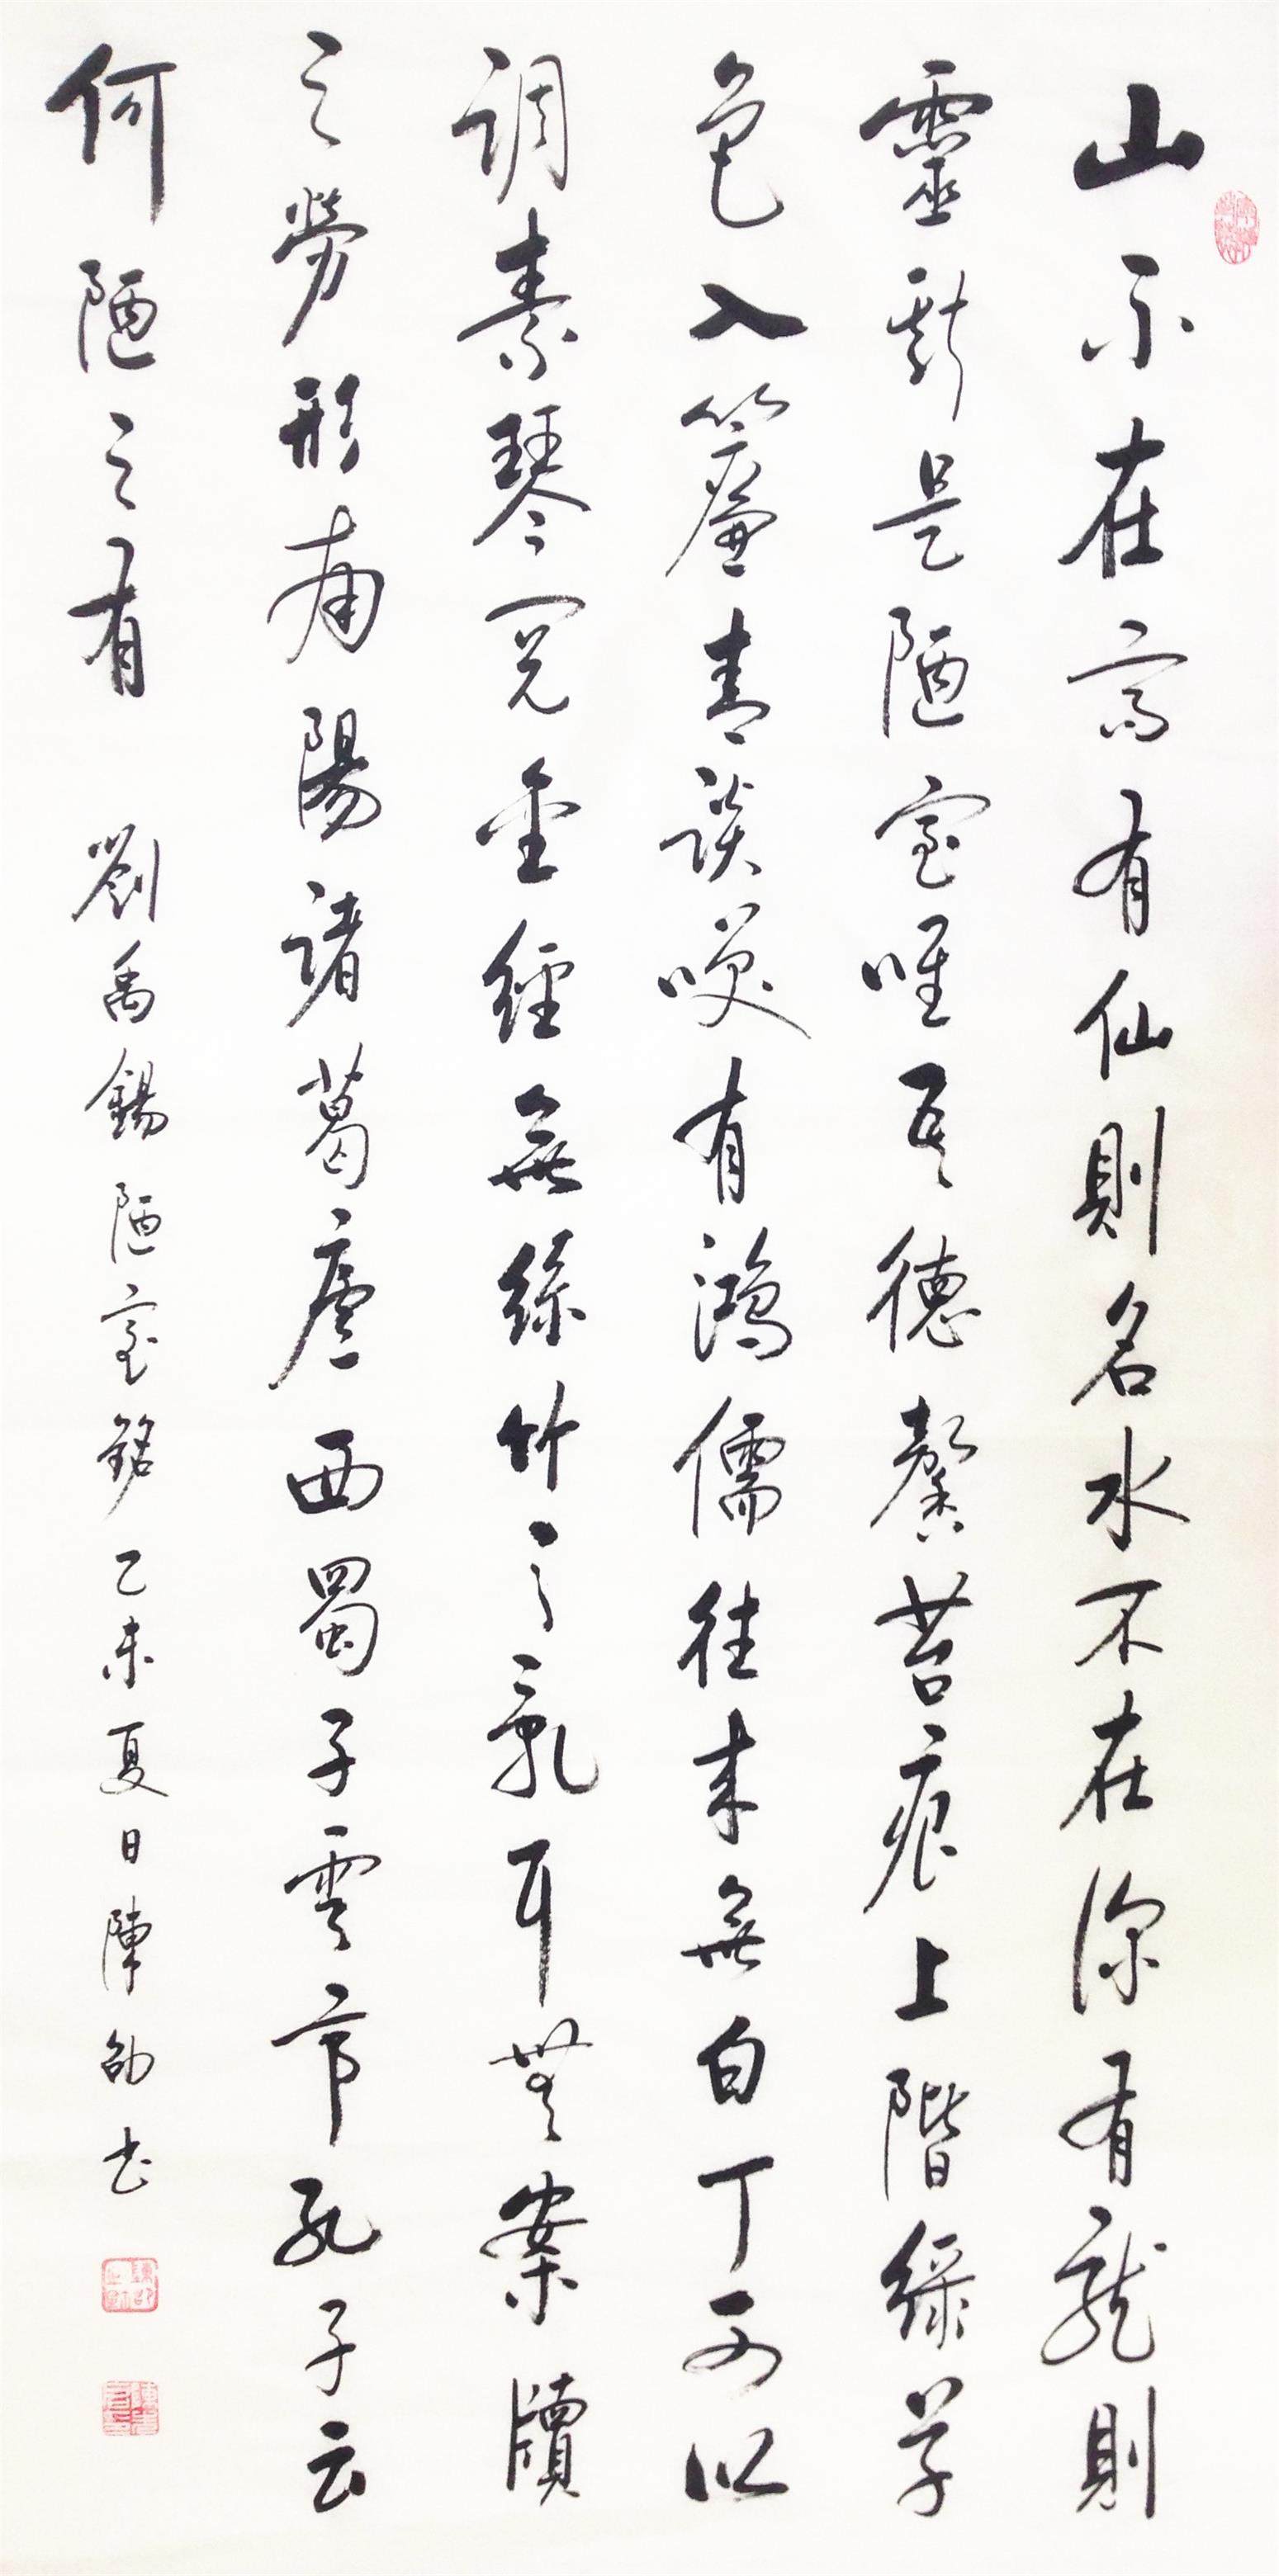 山不在高有仙則名水不在深有龍則
靈斯是陋室唯吾德馨苔痕上階綠草
色入簾青談咲有鴻儒往来無白丁可以
調素琴閱金經無絲竹之亂耳無案牘
之勞形南陽諸葛廬西蜀子雲亭孔子云
何陋之有 劉禹錫陋室銘乙未夏日陳劭书